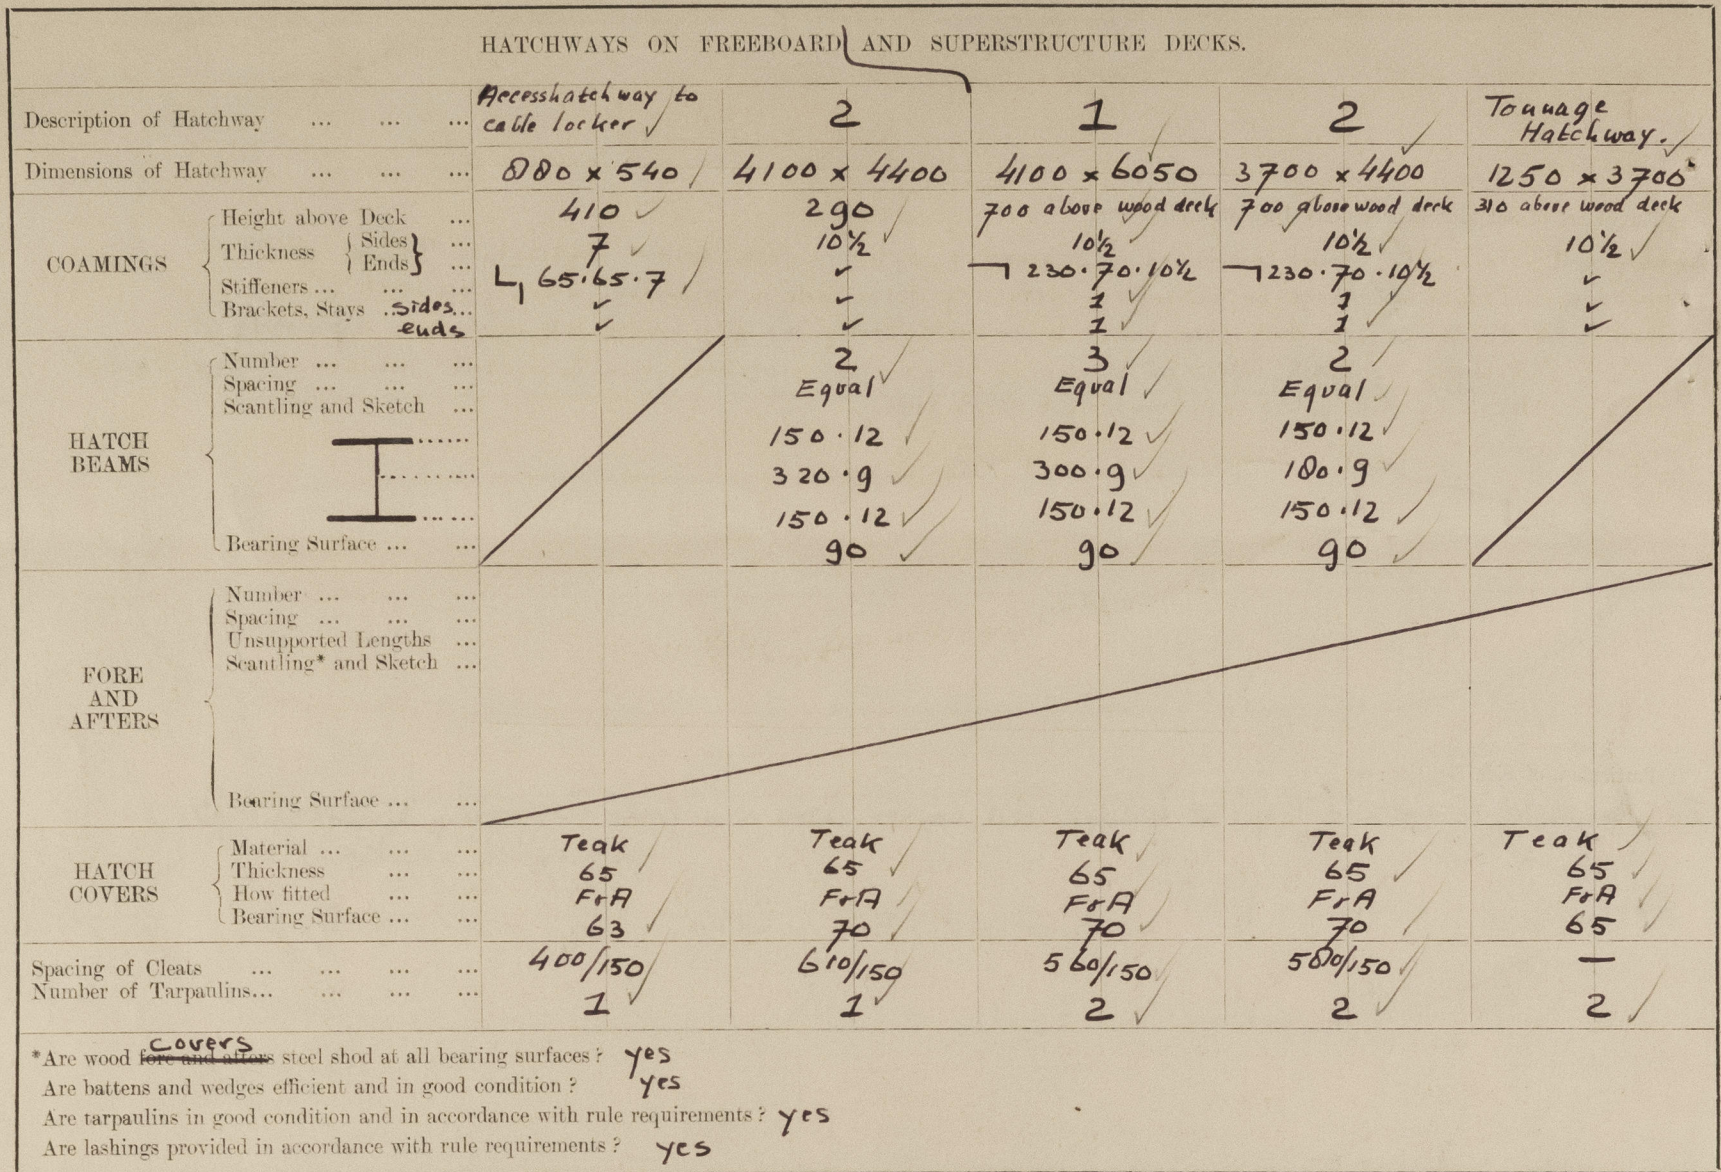 HATCHWAYS ON FREEBOARD AND SUPERSTRUCTURE DECKS.
Description of Hatchway ... ... ... Accesshatchway to cable locker ✓ 2 1 2 Tonnage Hatchway.
Dimensions of Hatchway ... ... ... 880 x 540 4100 x 4400 4100 x 6050 3700 x 4400 1250 x 3700
COAMINGS
Height above Deck ... 410 290 700 above wood deck 700 above wood deck 310 above wood deck
Thickness { Sides } ... 7 10½ 10½ 10½ 10½
Ends ...
Stiffeners ... ... ... 65·65·7 ✓ 230·70·10½ 230·70·10½ ✓
Brackets, Stays ..sides... ✓ ✓ 1 1 ✓
ends ✓ ✓ 1 1 ✓
HATCH BEAMS
Number ... ... ... 2 3 2
Spacing ... ... ... Equal Equal Equal
Scantling and Sketch ...
150·12 150·12 150·12
320·9 300·9 180·9
150·12 150·12 150·12
Bearing Surface ... ... 90 90 90
FORE AND AFTERS
Number ... ... ...
Spacing ... ... ...
Unsupported Lengths ...
Scantling* and Sketch ...
Bearing Surface ... ...
HATCH COVERS
Material ... ... ... Teak Teak Teak Teak Teak
Thickness ... ... 65 65 65 65 65
How fitted ... ... F&A F&A F&A F&A F&A
Bearing Surface ... ... 63 70 70 70 65
Spacing of Cleats ... ... ... ... 400/150 610/150 560/150 580/150 —
Number of Tarpaulins... ... ... ... 1 1 2 2 2
covers
*Are wood fore and afters steel shod at all bearing surfaces? yes
Are battens and wedges efficient and in good condition? yes
Are tarpaulins in good condition and in accordance with rule requirements? yes
Are lashings provided in accordance with rule requirements? yes